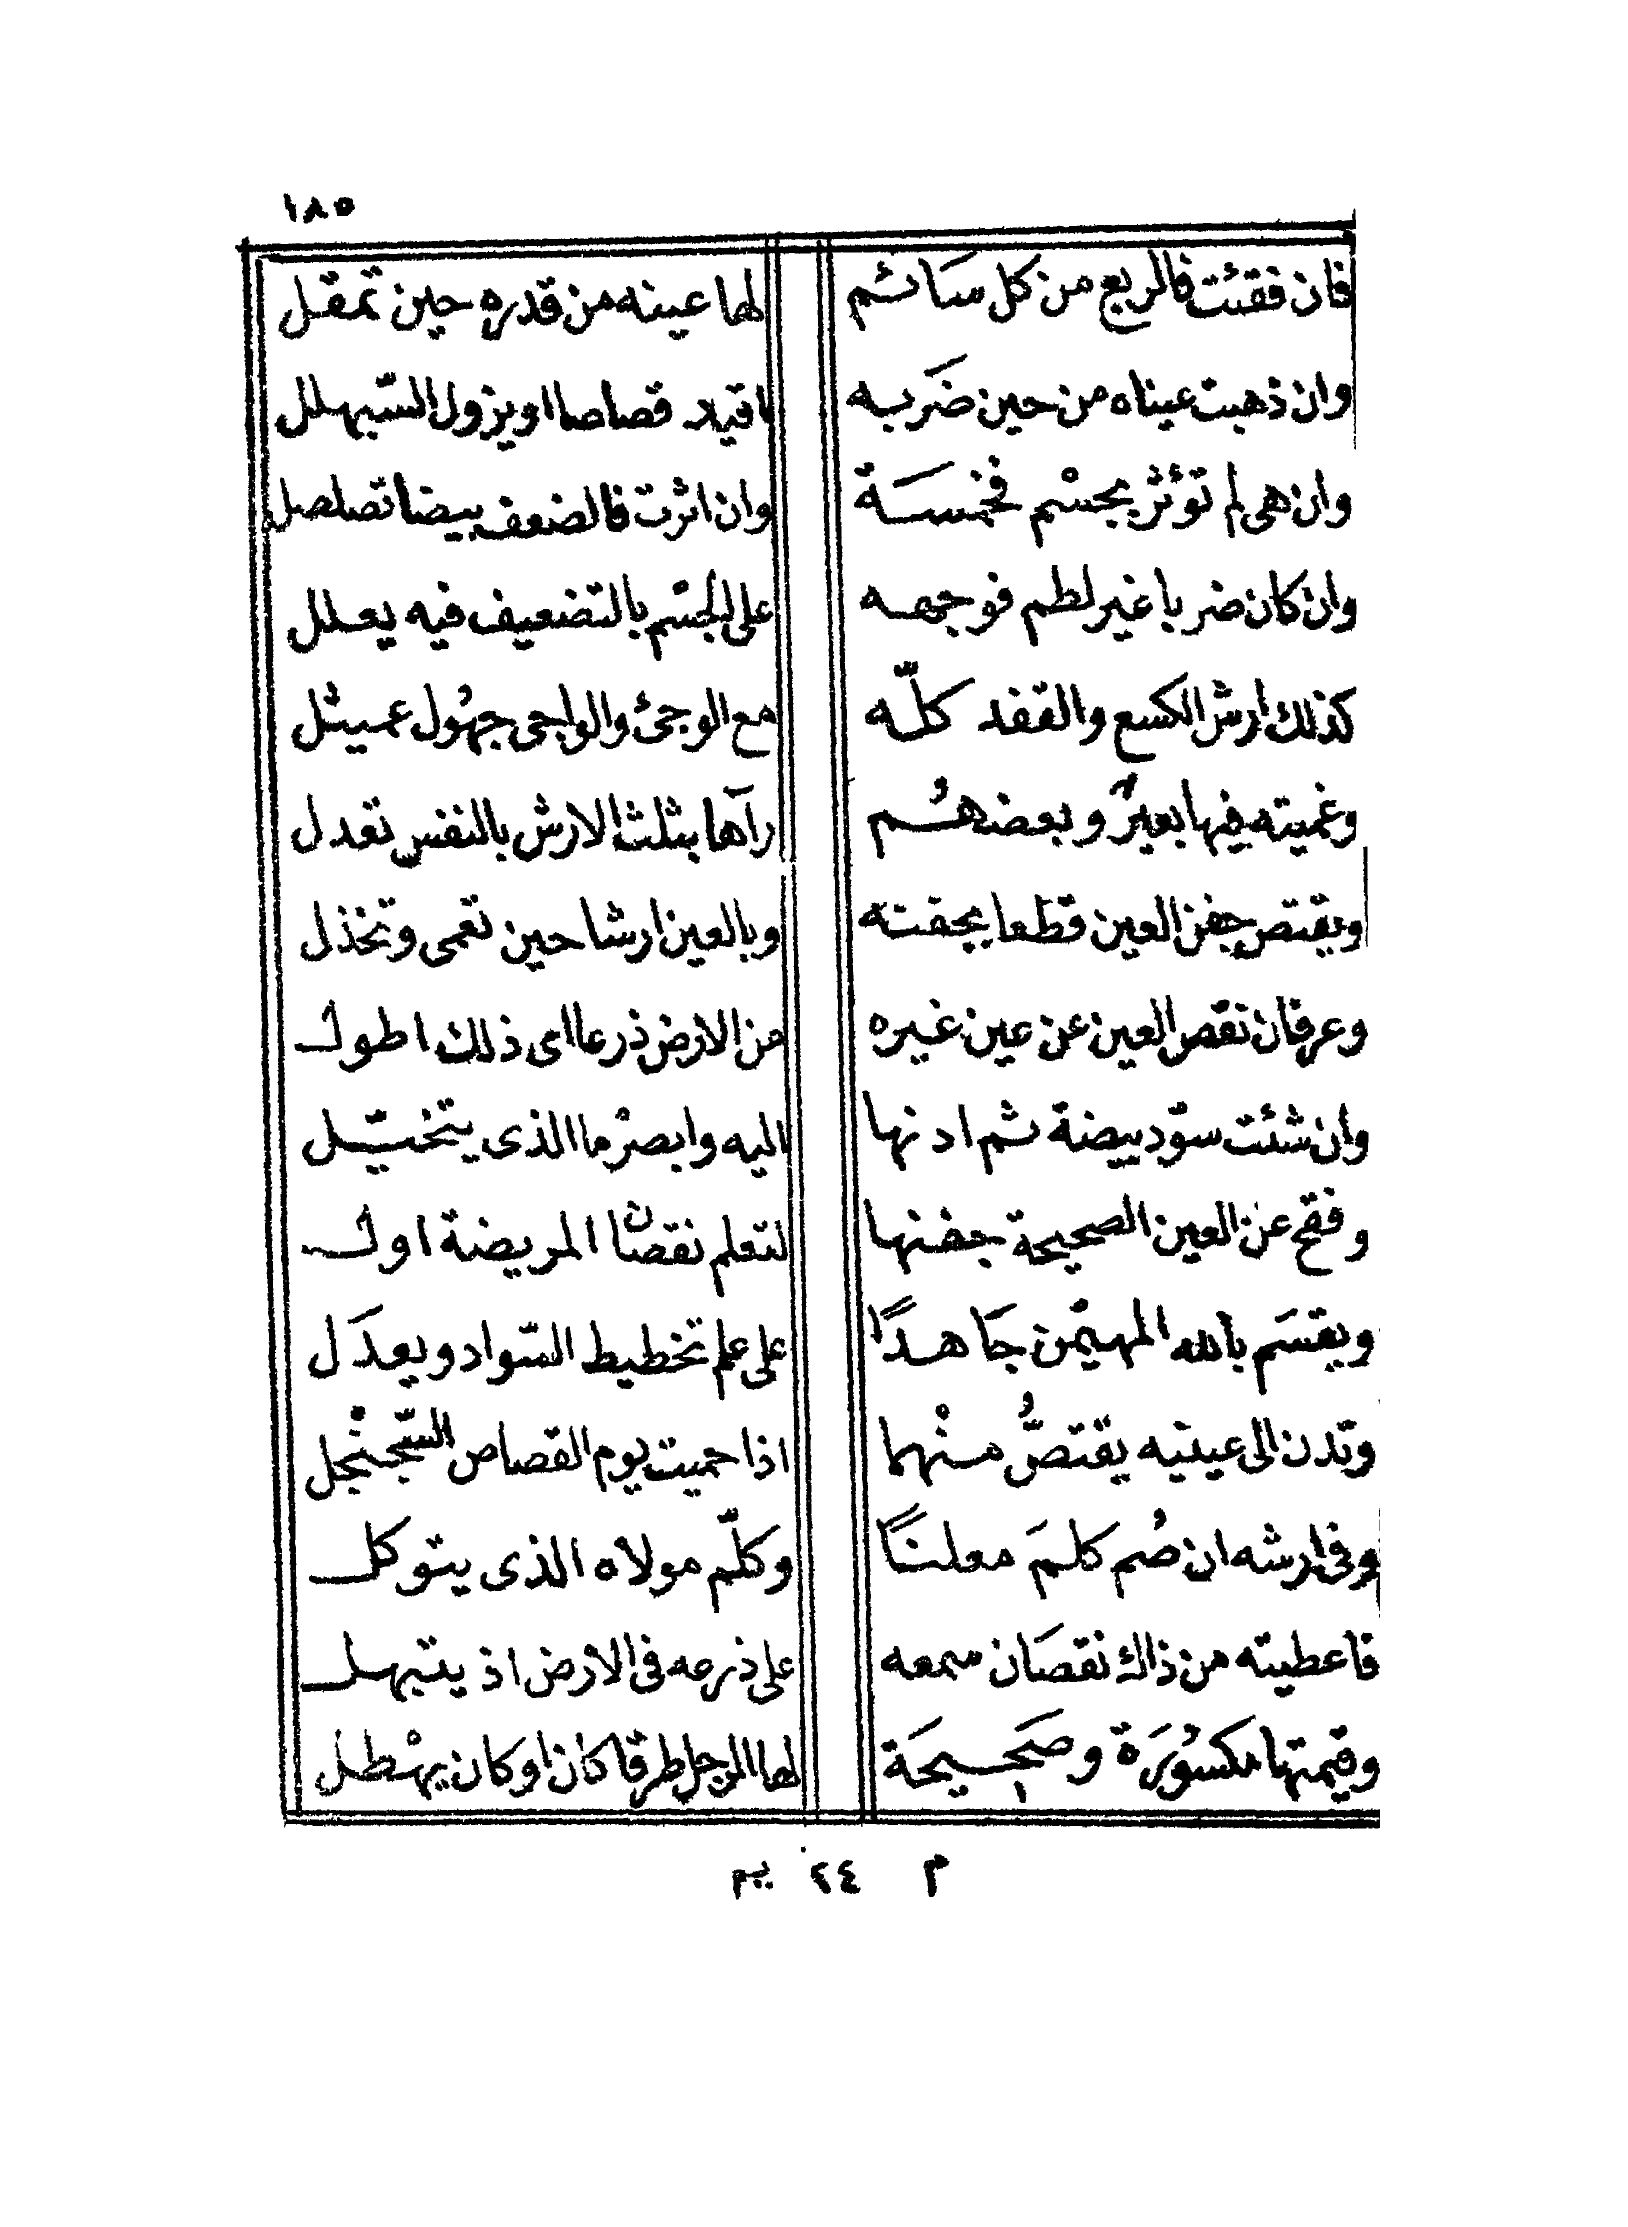 ١٨٥
فان فقئت فالربع من كل سائم لها عينه من قدره حين تمقل
وان ذهبت عيناه من حين ضربه اقيد قصاصا او يزول السبهلل
وان هى لم تؤثر بجسم فخمسة وان اثرت فالضعف بيضا تصلصل
وان كان ضربا غير لطم فوجهه على الجسم بالتضعيف فيه يعلل
كذلك ارش الكسع والقفد كله مع الوجئ والواجى جهول عميثل
وغميته فيها بعير وبعضهم رآها بثلث الارش بالنفس تعدل
ويقتص جفن العين قطعا بجفنته وبالعين ارشا حين تعمى وتخذل
وعرفان نقص العين عن عين غيره من الارض ذرعا اى ذلك اطول
وان شئت سوّد بيضة ثم ادنها اليه وابصر ما الذى يتخيّل
وفقح عن العين الصحيحة جفنها لتعلم نقصان المريضة اول
ويقسم بالله المهيمن جاهدًا على علم تخطيط السّواد ويعدل
وتدن الى عينيه يقتصّ منهما اذا حميت يوم القصاص السّجنجل
وفى ارشه ان صُم كلم معلنًا وكلّم مولاه الذى يتوكل
فاعطيته من ذاك نقصان سمعه على ذرعه فى الارض اذ يتبهل
وقيمتها مكسورة وصحيحة لها الرجل طرقا كان او كان يهطل
م ٢٤ يم